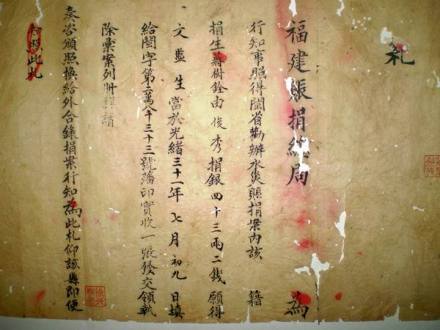 札
福建賑捐總局 為
行知事照得閩省勸辦水災賑捐案內該 籍
捐生 樹銓由 俊秀 捐銀 四十三兩二錢 願得
文監生 當於光緒三十一年 七月 初九 日填
給閩字第 萬八千三十三號藩印實收一張發交領執
除彙案列冊
奏咨頒照換給外合錄捐案行知為此札仰該縣即便
此札